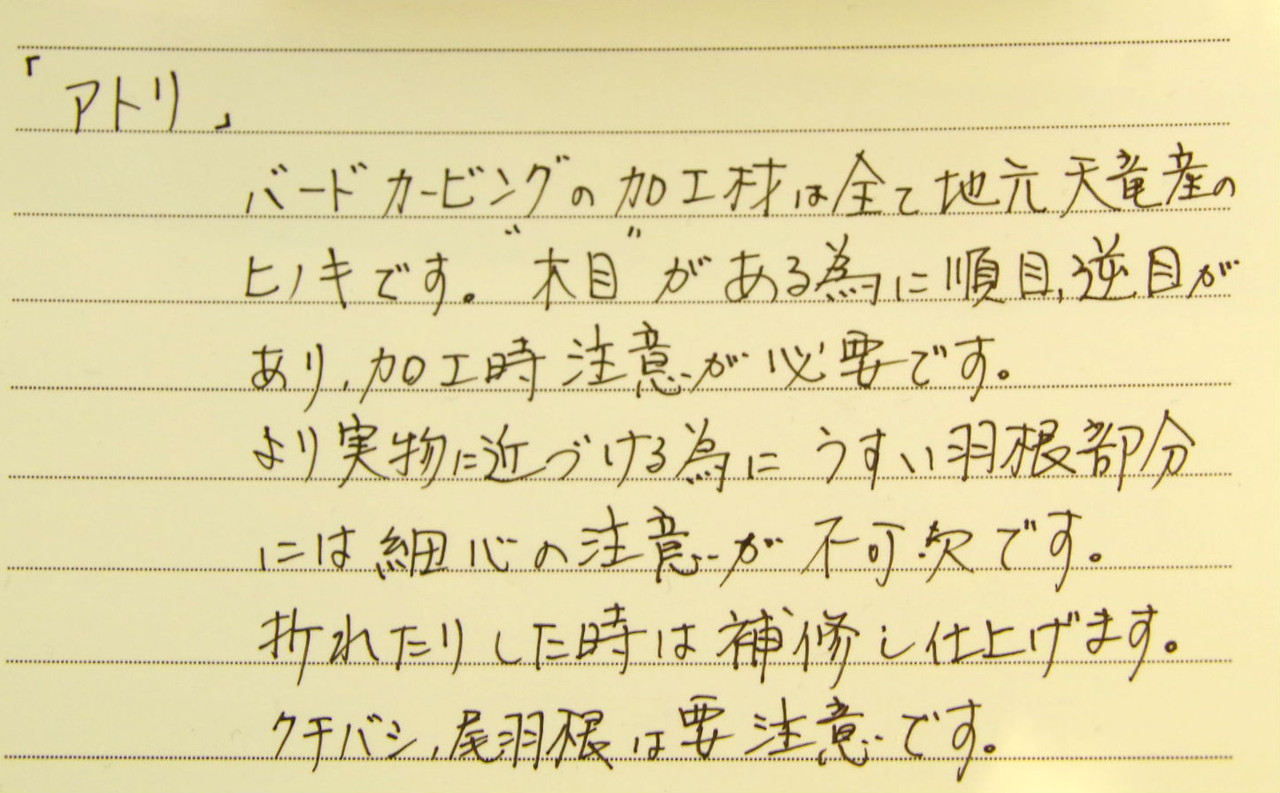 「アトリ」
バードカービングの加工材は全て地元天竜産の
ヒノキです。"木目"がある為に順目、逆目が
あり、加工時注意が必要です。
より実物に近づける為にうすい羽根部分
には細心の注意が不可欠です。
折れたりした時は補修し仕上げます。
クチバシ、尾羽根は要注意です。